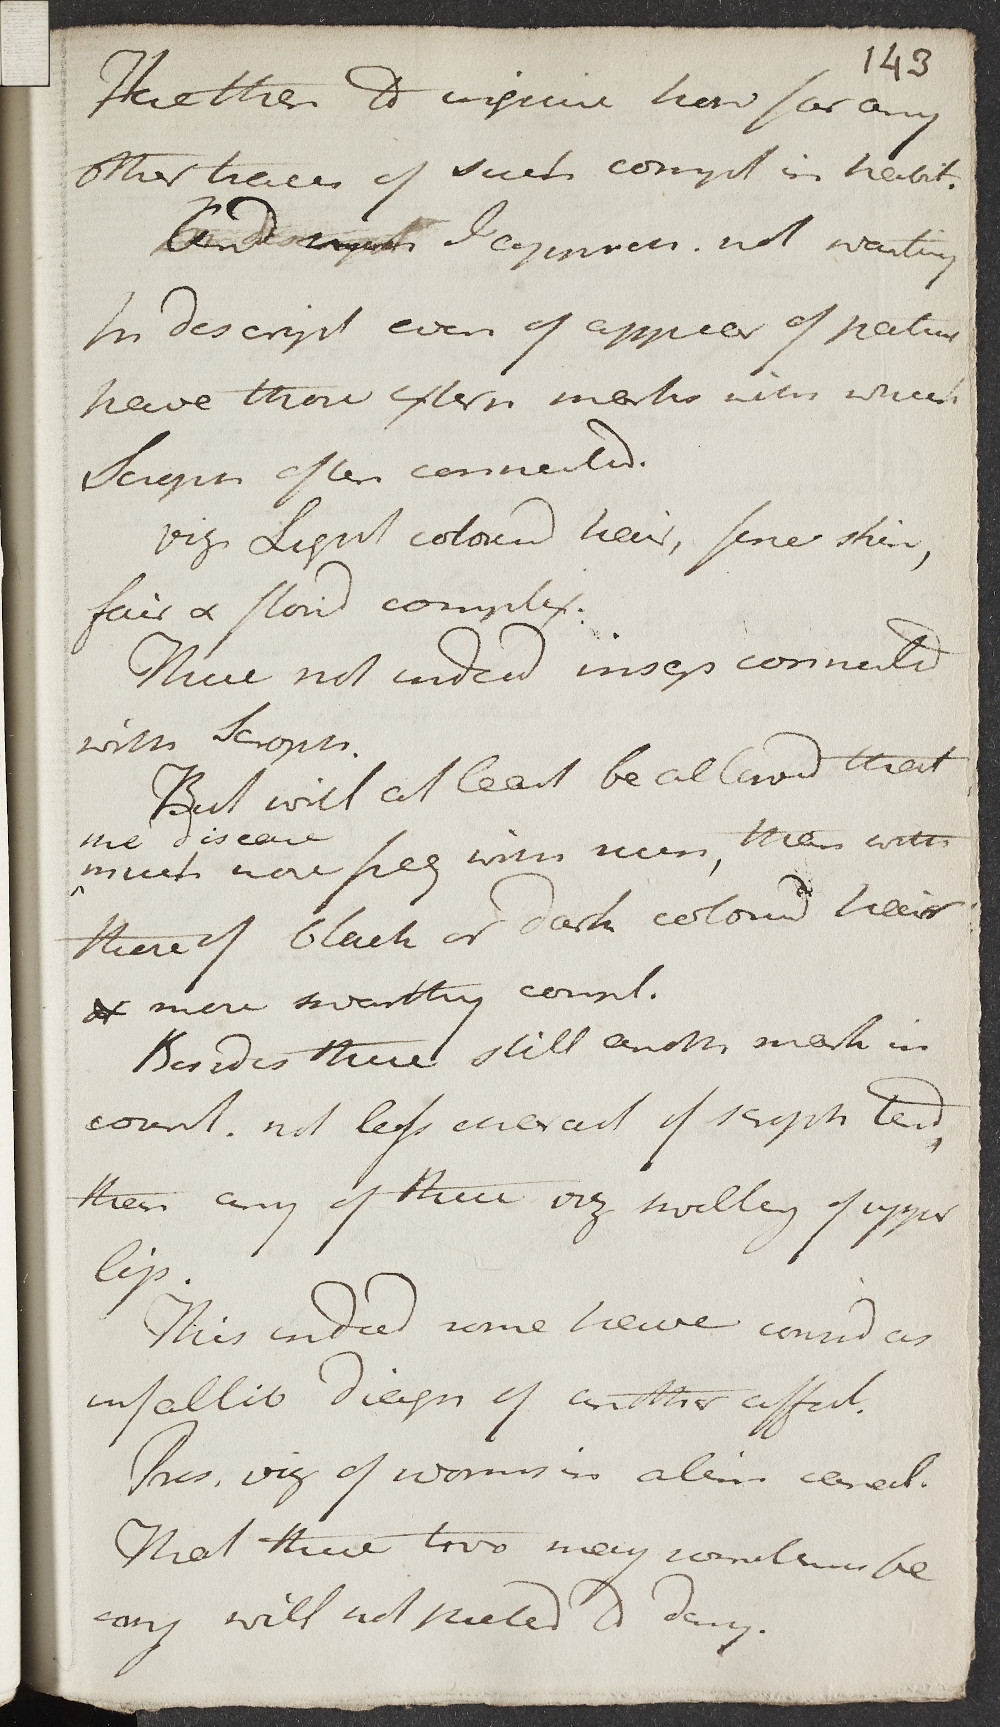 143
Hae then to inquire how far any
other traces of such compt in habit.
I apprehen. not wanting
In descript even of appear of patient
have those extern marks with which
Scroph often connected.
viz Light coloured hair, fine skin,
fair & florid complex.
These not indeed insep connected
with Scroph.
But will at least be allowed that
the disease
much more freq with such, than with
those of black or dark coloured hair
& more swarthy compl.
Besides these still anoth mark in
count. not less charact of scroph tend,
than any of these viz swelling of upper
lip.
This indeed some have consid as
infallib diagn of another affect.
Pres. viz of worms in alim canal.
That these two may sometimes be
conj will not pretend to deny.